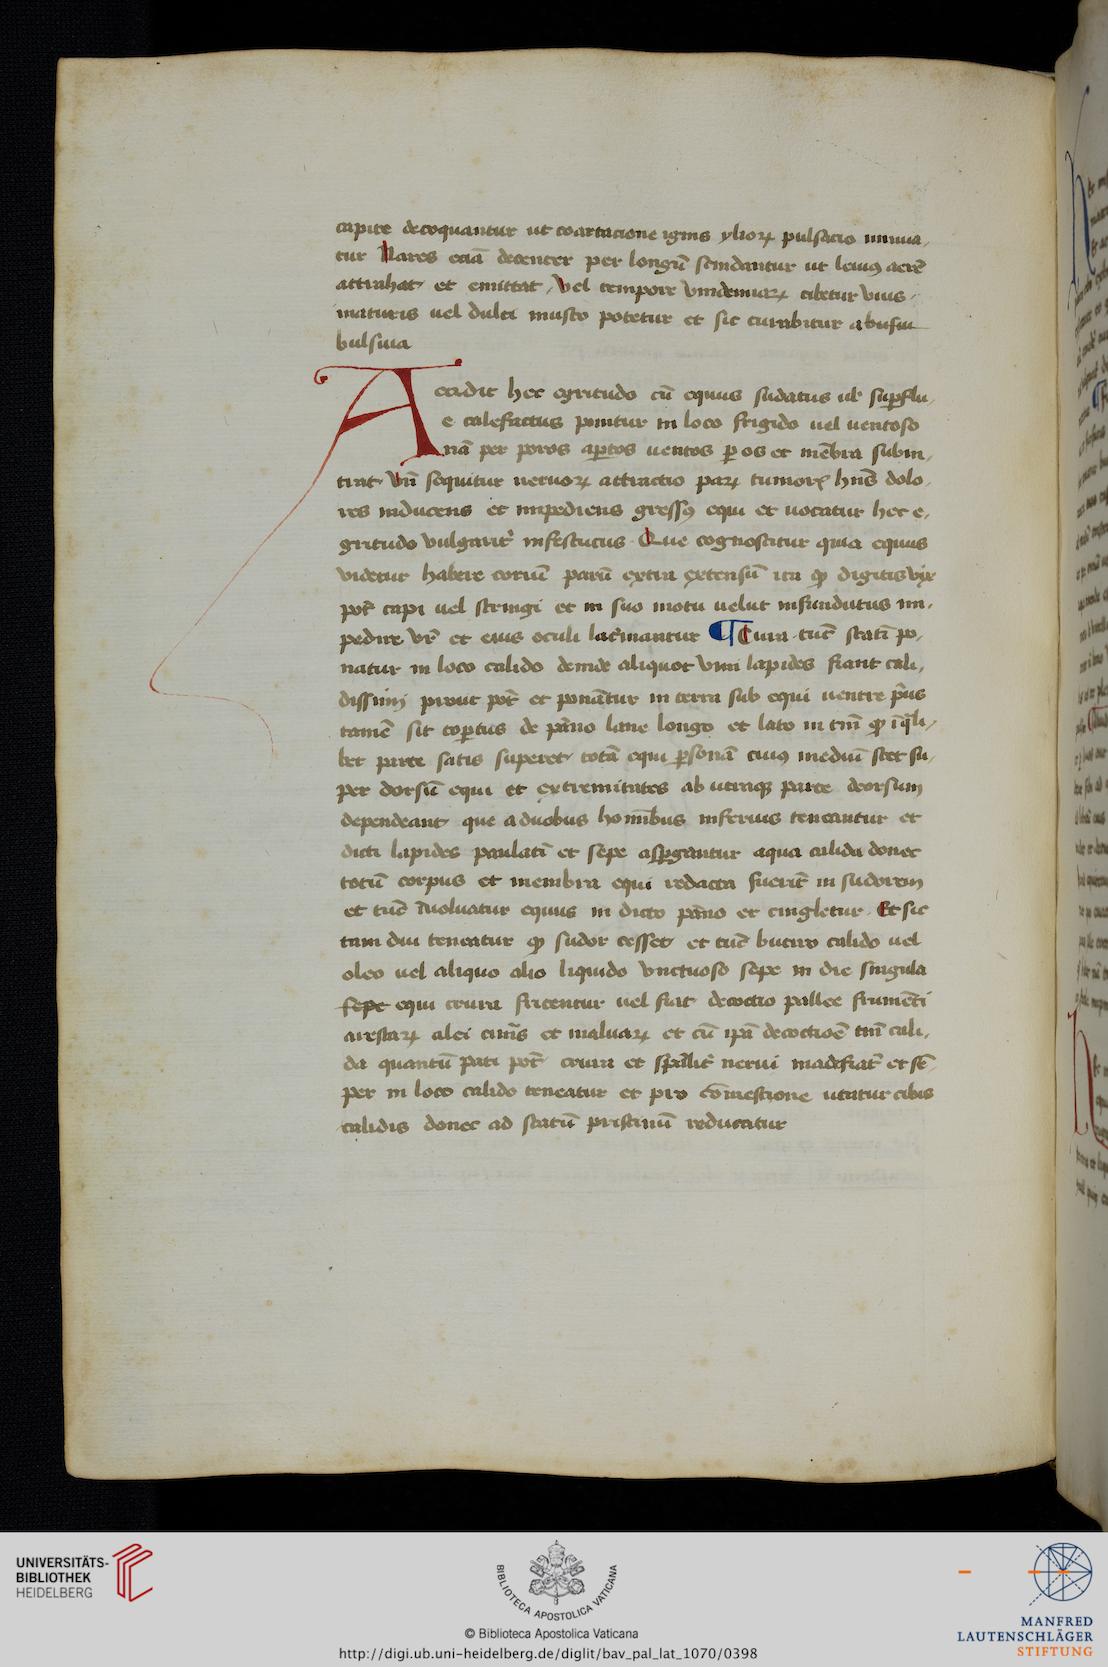 capite decoquantur ut coartacione ignis ylioꝝ pulsacio minua,
tur Nares eciā decenter per longū scindantur ut leuiꝰ aerē
attrahat et emittat, Vel tempore vindemiaꝝ cibetur vuis
maturis uel dulci musto potetur et sic curabitur a
bulsiua
Accidit hec egritudo cū equus sudatus ul' suꝑflu,
e calefactus ponitur in loco frigido uel uentoso
nā per poros aꝑtos uentos ꝑ os et mēbra subin,
trat Vn̄ sequitur neruoꝝ attractio paꝝ tumorē hn̄s dolo,
res inducens et impediens gressꝰ equi et uocatur hec e,
gritudo vulgarit' infestucus Que cognoscitur quia equus
videtur habere coriū parū extra extensū ita ꝙ digitis vix
pot' capi uel stringi et in suo motu uelut infundutus im,
pedire vr̄ et eius oculi lac'mantur ¶ Cura tūc statī po,
natur in loco calido deinde aliquot viui lapides fiant cali,
dissimi prout pot' et ponātur in terra sub equi uentre pi'us
tamē sit coꝑtus de pāno lane longo et lato in tm̄ ꝙ ī qͣli,
bet parte satis superet totā equi ꝑsonā cuiꝰ mediū stet su,
per dorsū equi et extremitates ab utraqꝫ parte deorsum
dependeant que a duobus homībus inferius teneantur et
dicti lapides paulatī et sepe asꝑgantur aqua calida donec
totū corpus et membra equi redacta fuerīt in sudorem
et tūc īuoluatur equus in dicto pāno et cingletur Et sic
tam diu teneatur ꝙ sudor cesset et tūc butiro calido uel
oleo uel aliquo alio liquido vnctuoso sepe in die singula
sepe equi crura fricentur uel fiat decoctio pallee frumēti
arestaꝝ alei cin'is et maluaꝝ et cū ip̄a decoctioē tm̄ cali,
da quantū pati pot' crura et sp̄alit' nerui madefiāt et sē,
per in loco calido teneatur et pro cōmestione utatur cibis
calidis donec ad statū pristinū reducatur
UNIVERSITÄTS-
BIBLIOTHEK
HEIDELBERG
BIBLIOTECA APOSTOLICA VATICANA
© Biblioteca Apostolica Vaticana
http://digi.ub.uni-heidelberg.de/diglit/bav_pal_lat_1070/0398
MANFRED
LAUTENSCHLÄGER
STIFTUNG